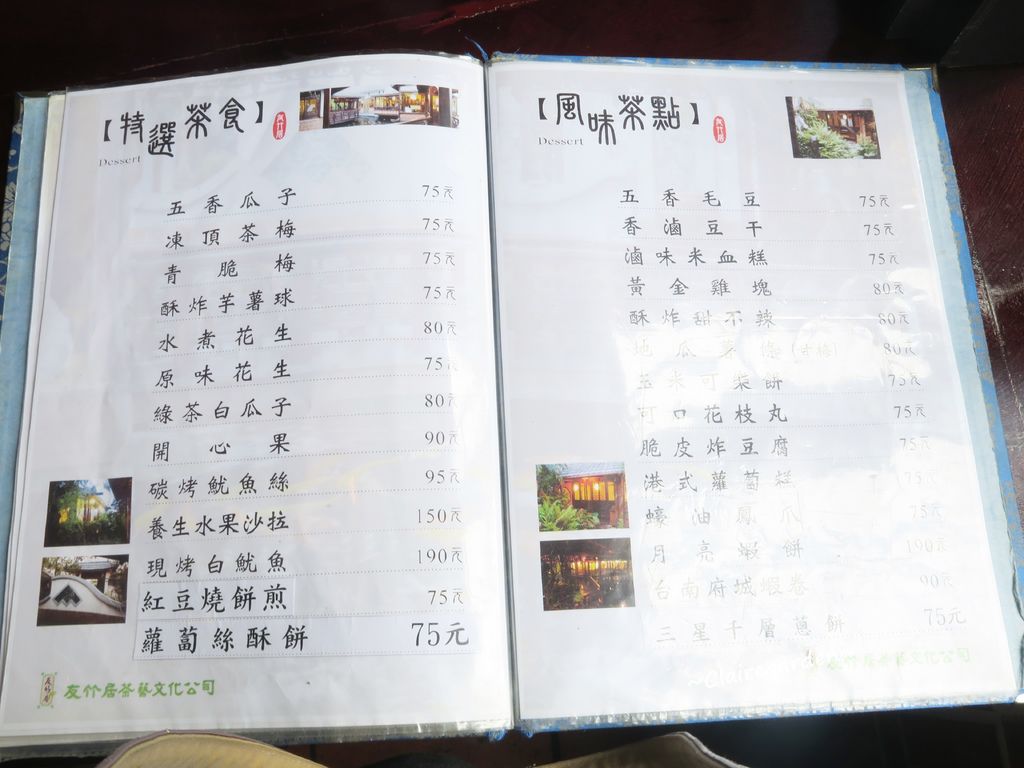 【特選茶食】
友竹居
Dessert
五香瓜子 75元
凍頂茶梅 75元
青脆梅 75元
酥炸芋薯球 75元
水煮花生 80元
原味花生 75元
綠茶白瓜子 80元
開心果 90元
碳烤魷魚絲 95元
養生水果沙拉 150元
現烤白魷魚 190元
紅豆燒餅煎 75元
蘿蔔絲酥餅 75元
友竹居
友竹居茶藝文化公司
【風味茶點】
友竹居
Dessert
五香毛豆 75元
香滷豆干 75元
滷味米血糕 75元
黃金雞塊 80元
酥炸甜不辣 80元
地瓜薯條(甘梅) 80元
玉米可裝餅 75元
可口花枝丸 75元
脆皮炸豆腐 75元
港式蘿蔔糕 75元
蠔油鳳爪 75元
月亮蝦餅 190元
台南府城蝦卷 90元
三星千層蔥餅 75元
友竹居茶藝文化公司